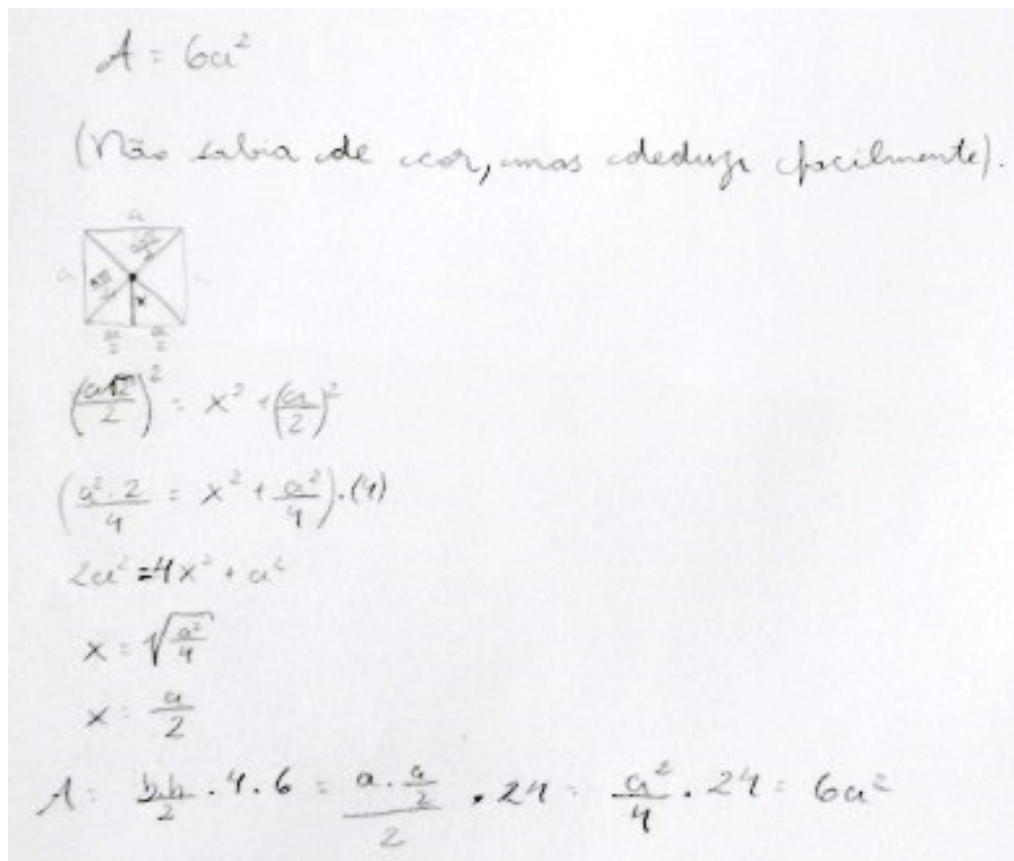 A = 6a²
(Não sabia de cor, mas deduzi facilmente).
a
a√2/2
a a√2/2 x a
a/2 a/2
(a√2/2)² = x² + (a/2)²
(a²·2/4 = x² + a²/4)·(4)
2a² = 4x² + a²
x = √(a²/4)
x = a/2
A = b·h/2 · 4 · 6 = (a · a/2)/2 · 24 = a²/4 · 24 = 6a²